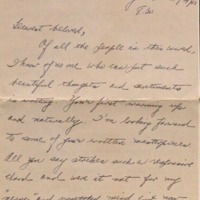 8:30
Dearest beloved,
Of all the people in this world,
I know of no one who can put such
beautiful thoughts and sentiments
in writing. Your first warming up
and naturally, I'm looking forward
to some of your written masterpieces.
All you say strikes such a responsive
chord and were it not for my
and mind but now